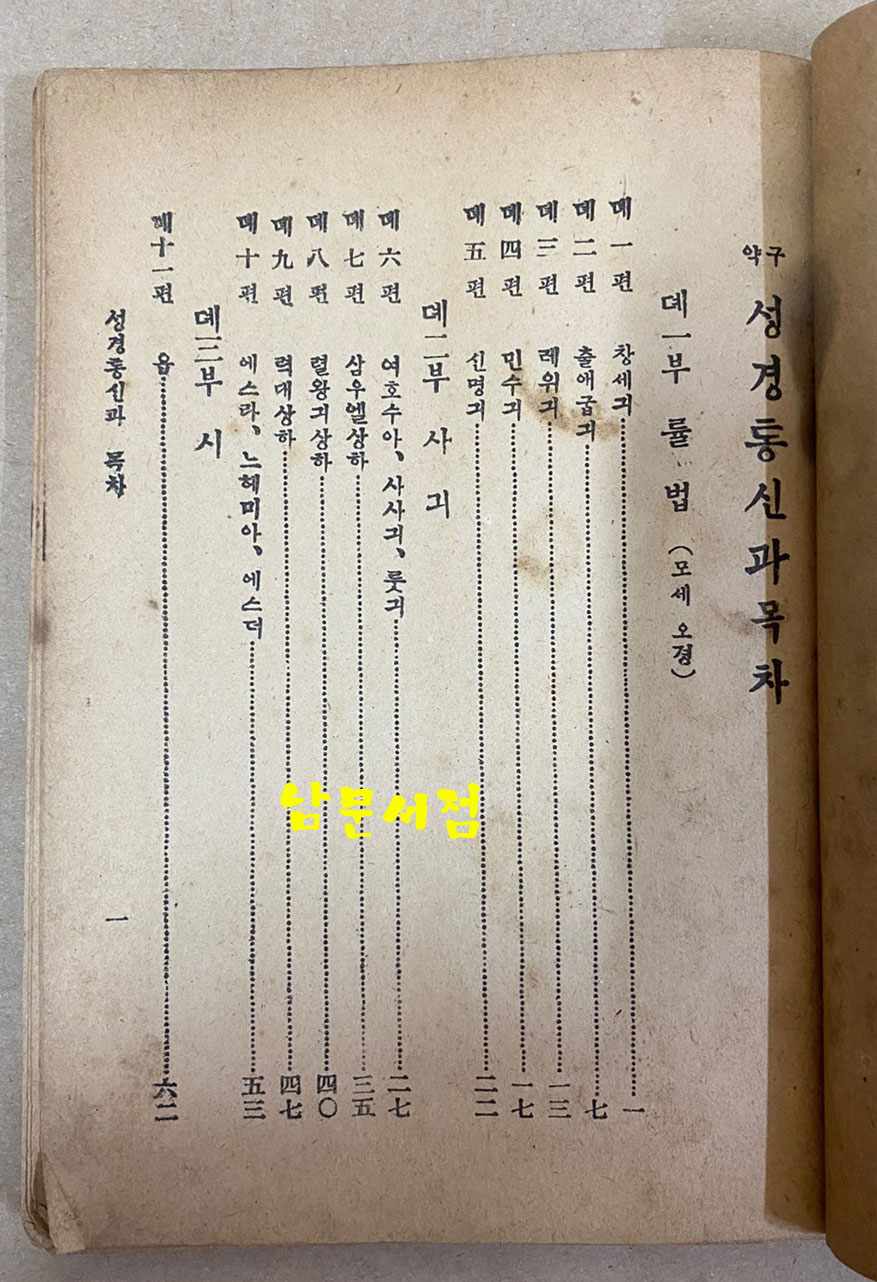 구약 성경통신과목차
뎨一부 률법 (모세오경)
뎨一편 창세긔 一
뎨二편 출애굽긔 七
뎨三편 레위긔 一三
뎨四편 민수긔 一七
뎨五편 신명긔 二二
뎨二부 사긔
뎨六편 여호수아、사사긔、룻긔 二七
뎨七편 삼우엘상하 三五
뎨八편 렬왕긔상하 四〇
뎨九편 력대상하 四七
뎨十편 에스라、느헤미아、에스더 五三
뎨三부 시
뎨十一편 욥 六二
성경통신과 목차
一
남문서점